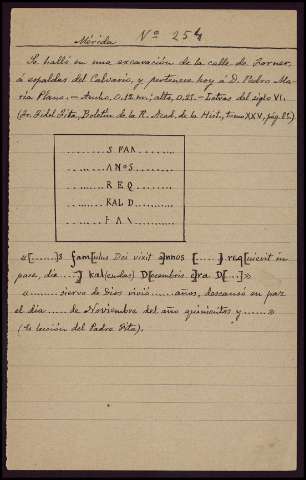 Mérida Nº 254
Se halló en una excavación de la calle de Forner,
á espaldas del Calvario, y pertenece hoy á D. Pedro Ma-
ría Plano.— Ancho, 0,12 m; alto, 0,21.— Letras del siglo VI.
(Sr. Fidel Fita, Boletín de la R. Acad. de la Hist., tomo XXV, pág. 82).
S FAA
ANOS
REQ
KAL D
«[......]s fam[ulus Dei vixit annos [......] req[uievit in
pace, día ....] kal(endas) D[ecembris era D[...]»
«........ siervo de Dios vivió ...... años, descansó en paz
el día ...... de Noviembre del año quinientos y ...... »
(Es lección del Padre Fita).